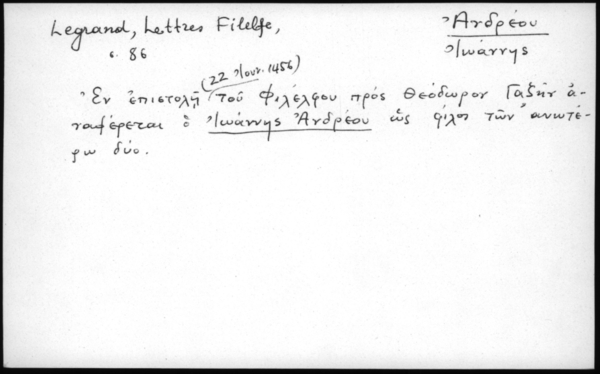 Legrand, Lettres Filelfe,
σ. 86
Ἀνδρέου
Ἰωάννης
(22 Ἰουν. 1456)
Ἐν ἐπιστολῇ τοῦ Φιλέλφου πρὸς Θεόδωρον Γαζῆν ἀ-
ναφέρεται ὁ Ἰωάννης Ἀνδρέου ὡς φίλος τῶν ἀνωτέ-
ρω δύο.